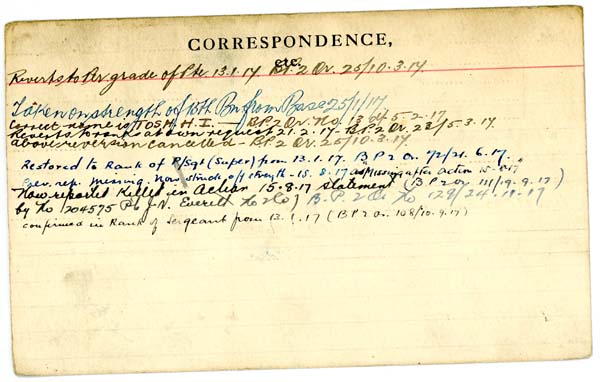 CORRESPONDENCE,
etc.
Reverts to Br grade of Pte 13.1.17 B.P.2 Or. 25/10.3.17
Taken on strength of 16th Bn from Base 25/1/17
Correct name is TOSH. H. I. — B.P.2 Or. No. 13 of 5.2.17
Reverts to at own request 21.2.17 - B.P.2 Or. 23/5.3.17.
above reversion cancelled - B.P.2 Or. 25/10.3.17.
Restored to Rank of P/Sgt (Super) from 13.1.17. B P 2 or. 72/21.6.17.
Prev. rep. missing. Now struck off strgth - 15.8.17 as Missing after action 15.8.17
Now reported Killed in Action 15.8.17 statement (B P 2 or 111/19.9.17)
by No 204575 Pte J.N. Everett No 2 Co) B.P.2 Or No 129/24.11.17
confirmed in Rank of Sergeant from 13.1.17 (B P 2 or. 108/10.9.17)